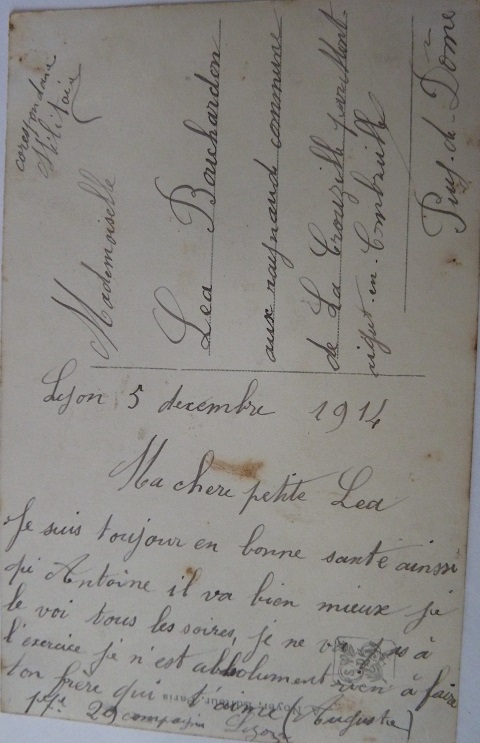 corespondance
Militaire
Mademoiselle
Lea Bouchardon
aux raynaud commune
de La Crouzille par Mont-
aigut-en-Combraille
Puy-de-Dôme
Lyon 5 decembre 1914
Ma chere petite Lea
Je suis toujour en bonne santé ainsi
qui Antoine il va bien mieux je
le voi tous les soires, je ne vai pas à
l'exercice je n'est abbsolument rien à faire
ton frère qui t'aime (Auguste)
29 compagnie